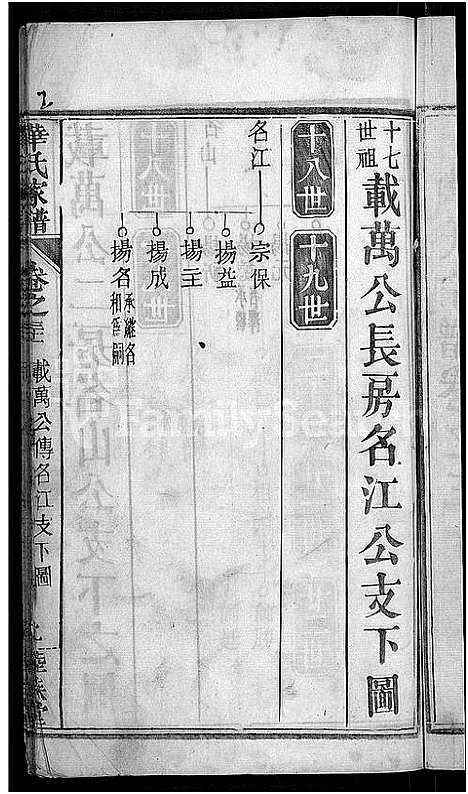 十七世祖
載萬公長房名江公支下圖
十八世
十九世
名江
宗保
揚益
揚主
揚成
揚名承繼名和爲嗣
華氏家譜
卷之三
載萬公傳名江支下圖